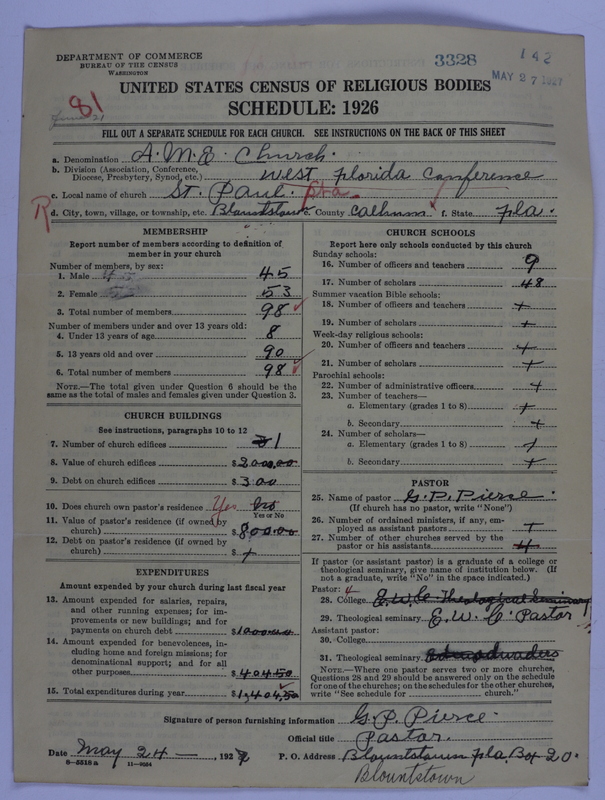 DEPARTMENT OF COMMERCE
BUREAU OF THE CENSUS
WASHINGTON
3328
142
MAY 27 1927
UNITED STATES CENSUS OF RELIGIOUS BODIES
SCHEDULE: 1926
81
FILL OUT A SEPARATE SCHEDULE FOR EACH CHURCH. SEE INSTRUCTIONS ON THE BACK OF THIS SHEET
a. Denomination A.M.E. Church.
b. Division (Association, Conference, Diocese, Presbytery, Synod, etc.) West Florida Conference
c. Local name of church St. Paul. Sta.
R
d. City, town, village, or township, etc. Blountstown e. County Calhoun f. State Fla.
MEMBERSHIP
Report number of members according to definition of member in your church
Number of members, by sex:
1. Male 45
2. Female 53
3. Total number of members 98
Number of members under and over 13 years old:
4. Under 13 years of age 8
5. 13 years old and over 90
6. Total number of members 98
NOTE.—The total given under Question 6 should be the same as the total of males and females given under Question 3.
CHURCH BUILDINGS
See instructions, paragraphs 10 to 12
7. Number of church edifices 1
8. Value of church edifices $2000.00
9. Debt on church edifices $3.00
10. Does church own pastor's residence Yes No
Yes or No
11. Value of pastor's residence (if owned by church) $800.00
12. Debt on pastor's residence (if owned by church) $ +
EXPENDITURES
Amount expended by your church during last fiscal year
13. Amount expended for salaries, repairs, and other running expenses; for improvements or new buildings; and for payments on church debt $1000.00
14. Amount expended for benevolences, including home and foreign missions; for denominational support; and for all other purposes $404.50
15. Total expenditures during year $1,404.50
CHURCH SCHOOLS
Report here only schools conducted by this church
Sunday schools:
16. Number of officers and teachers 9
17. Number of scholars 48
Summer vacation Bible schools:
18. Number of officers and teachers +
19. Number of scholars +
Week-day religious schools:
20. Number of officers and teachers +
21. Number of scholars +
Parochial schools:
22. Number of administrative officers +
23. Number of teachers—
a. Elementary (grades 1 to 8) +
b. Secondary +
24. Number of scholars—
a. Elementary (grades 1 to 8) +
b. Secondary +
PASTOR
25. Name of pastor G. P. Pierce.
(If church has no pastor, write "None")
26. Number of ordained ministers, if any, employed as assistant pastors +
27. Number of other churches served by the pastor or his assistants
If pastor (or assistant pastor) is a graduate of a college or theological seminary, give name of institution below. (If not a graduate, write "No" in the space indicated.)
Pastor:
28. College E.W.C. Theological Seminary
29. Theological seminary E.W.C. Pastor
Assistant pastor:
30. College
31. Theological seminary Edward Waters
NOTE.—Where one pastor serves two or more churches, Questions 28 and 29 should be answered only on the schedule for one of the churches; on the schedules for the other churches, write "See schedule for church."
Signature of person furnishing information G. P. Pierce.
Official title Pastor.
Date May 24 — , 1927
P. O. Address Blountstown Fla. Box 20.
8—5318 a 11—9554
Blountstown